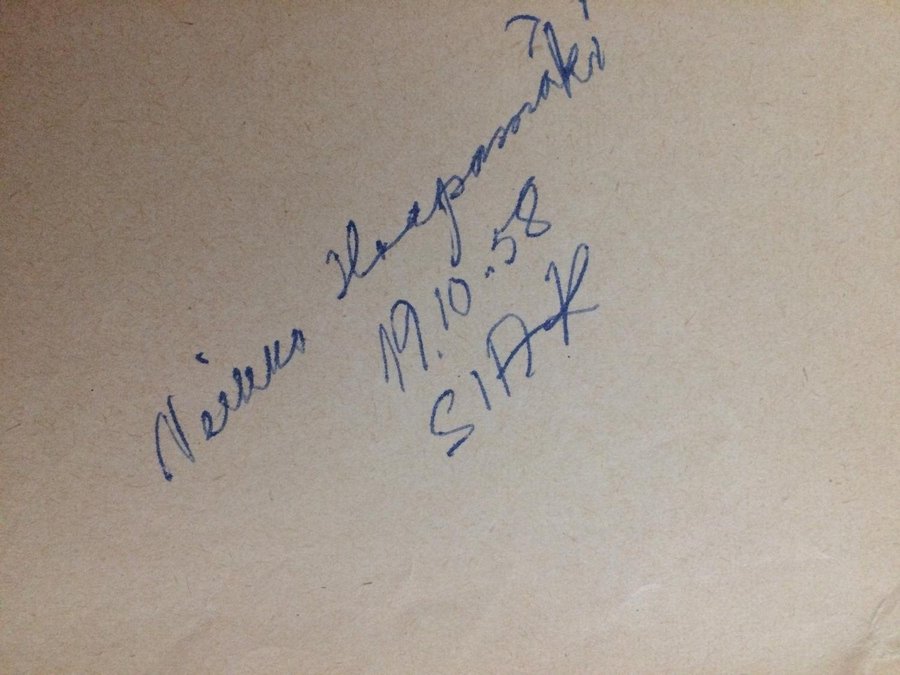 Veikko Haapamäki
19.10.58
SIAK